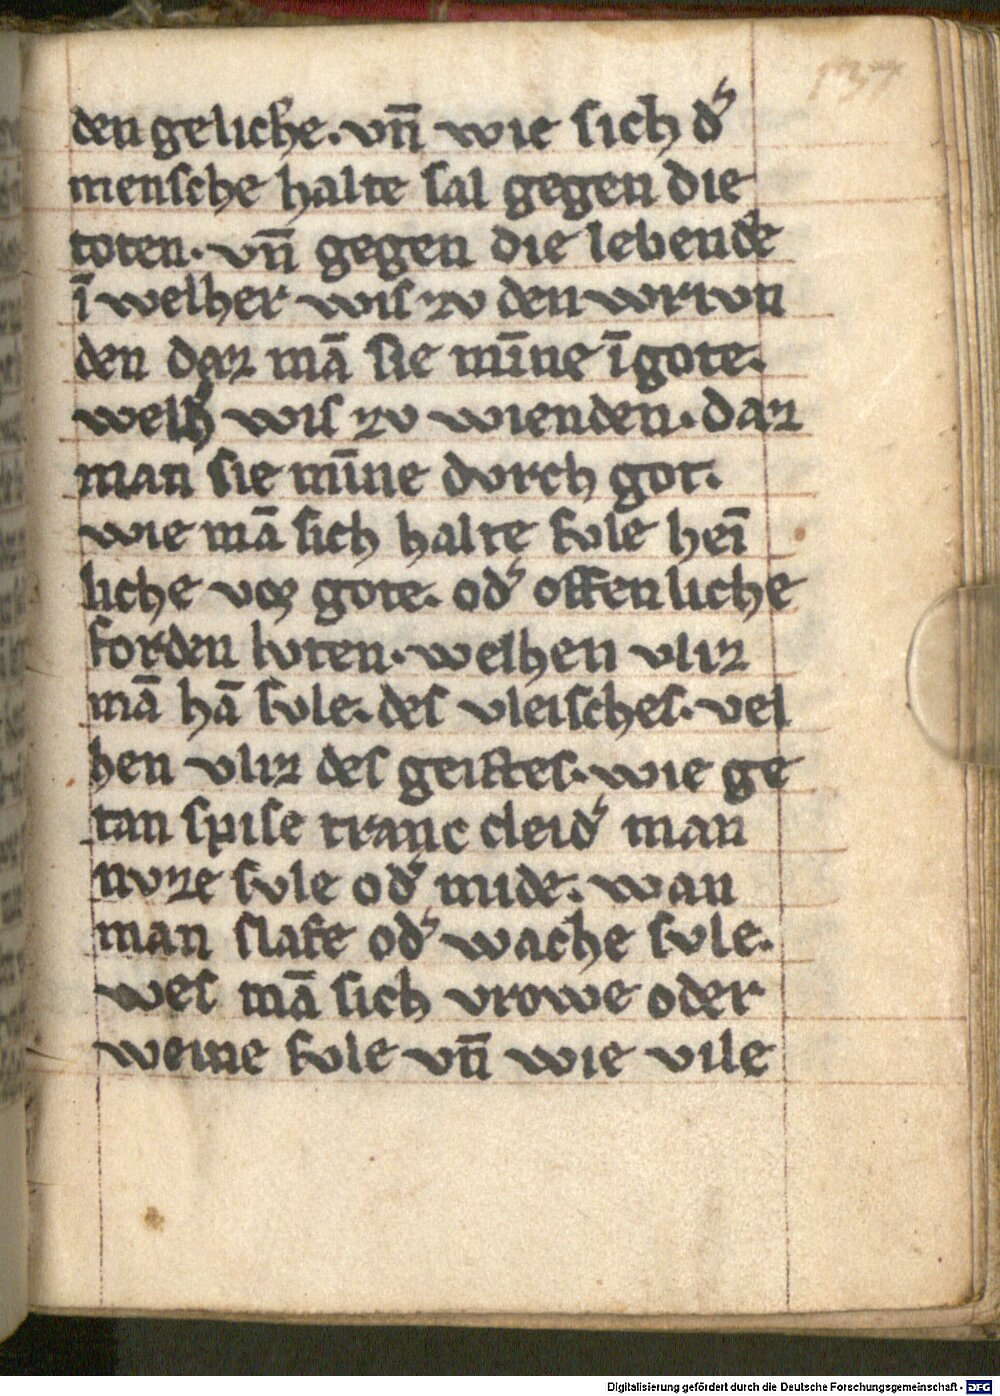 137
den geliche. vn̄ wie sich d᷑
mensche halte sal gegen die
toten. vn̄ gegen die lebende
ī welher wis zv den vrivn
den daz mā sie mīne ī gote.
welh᷑ wis zv vienden. daz
man sie mīne dvrch got.
wie mā sich halte svle heī
liche vor gote. od᷑ offenliche
for den lvten. welhen vliz
mā hā svle. des vleisches. vel
hen vliz des geistes. wie ge
tan spise tranc cleid᷑ man
nvze svle od᷑ mide. wan
man slafe od᷑ wache svle.
wes mā sich vrowe oder
weine svle vn̄ wie vile
Digitalisierung gefördert durch die Deutsche Forschungsgemeinschaft - DFG